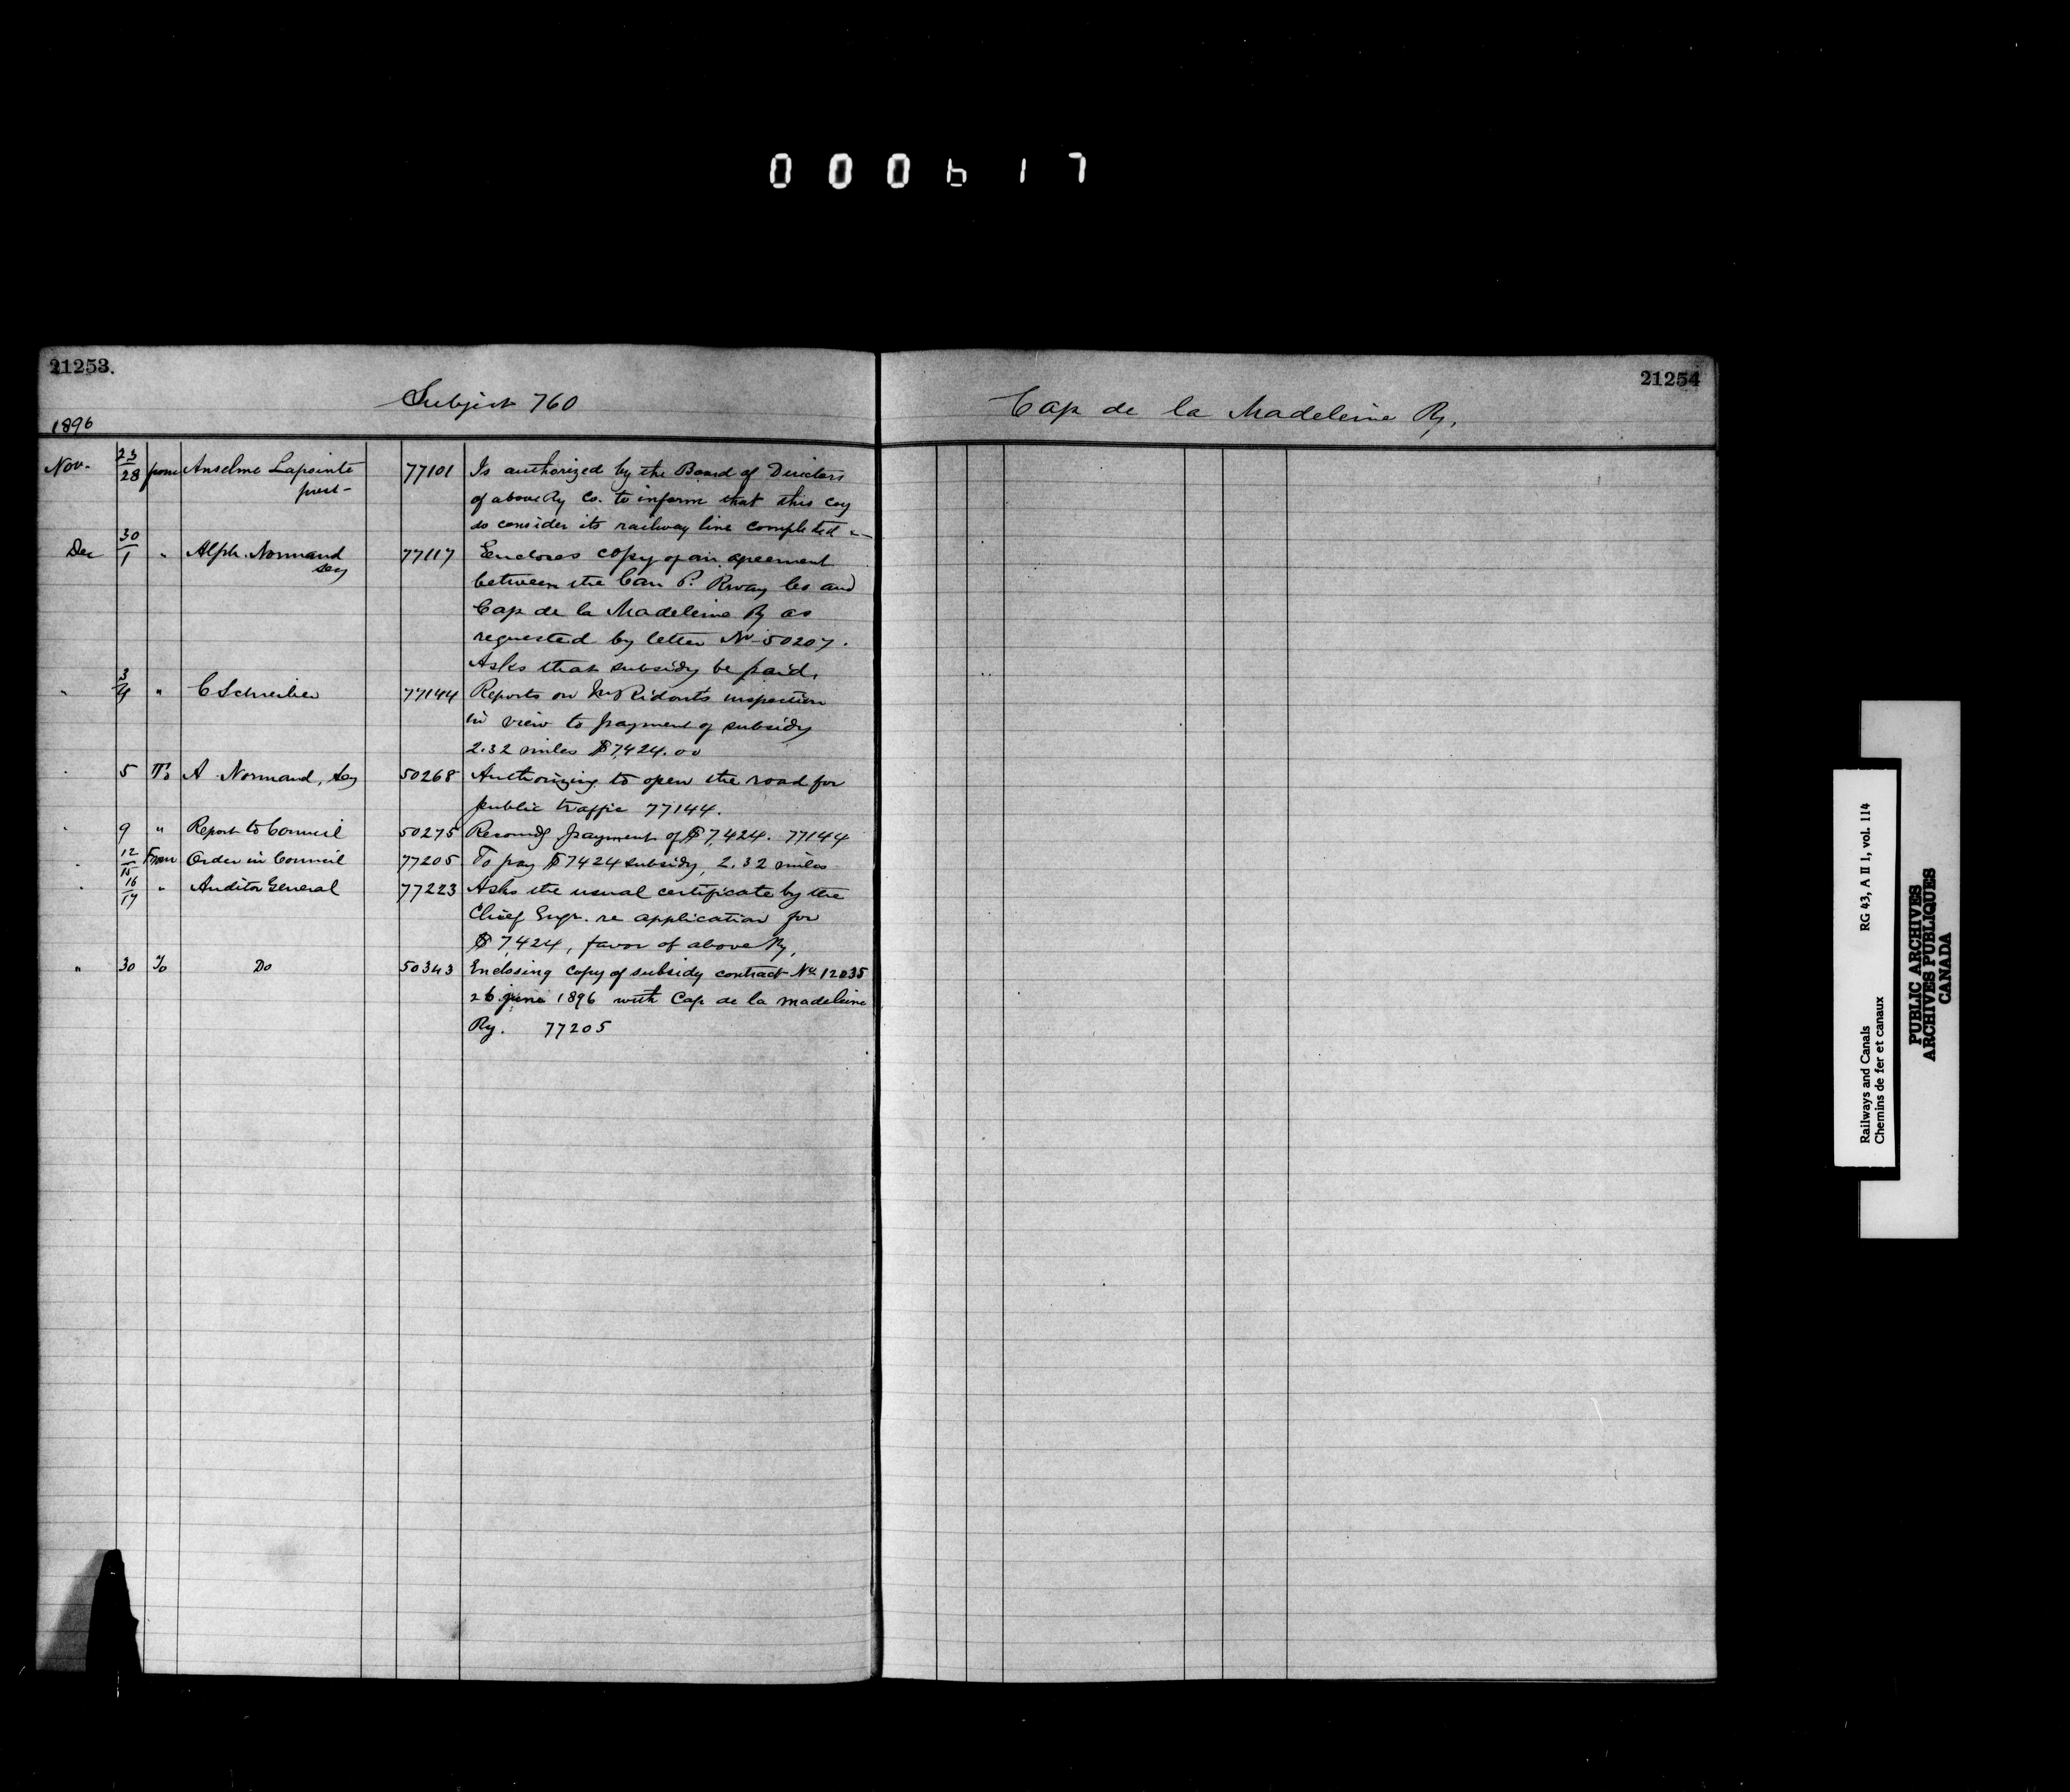 000617
21253.
Subject 760
1896
Nov. 23/28 from Anselme Lapointe 77101 Is authorized by the Board of Directors
prest- of above Ry Co. to inform that this coy
do consider its railway line completed
Dec 30/1 " Alph. Normand 77117 Encloses copy of an agreement
secy between the Can P. Rway Co and
Cap de la Madeleine Ry as
requested by letter No 50207.
Asks that subsidy be paid.
" 3/4 " C Schreiber 77144 Reports on Mr Ridout's inspection
in view to payment of subsidy
2.32 miles $7,424.00
" 5 To A Normand, Secy 50268 Authorizing to open the road for
public traffic 77144.
" 9 " Report to Council 50275 Recomdg payment of $7,424. 77144
" 12/15 From Order in Council 77205 To pay $7424 subsidy, 2.32 miles
" 16/17 " Auditor General 77223 Asks the usual certificate by the
Chief Engr. re application for
$7,424, favor of above Ry,
" 30 To Do 50343 Enclosing copy of subsidy contract No. 12035
26 june 1896 with Cap de la madeleine
Ry. 77205
21254
Cap de la Madeleine Ry.
Railways and Canals RG 43, A II 1, vol. 114
Chemins de fer et canaux
PUBLIC ARCHIVES
ARCHIVES PUBLIQUES
CANADA